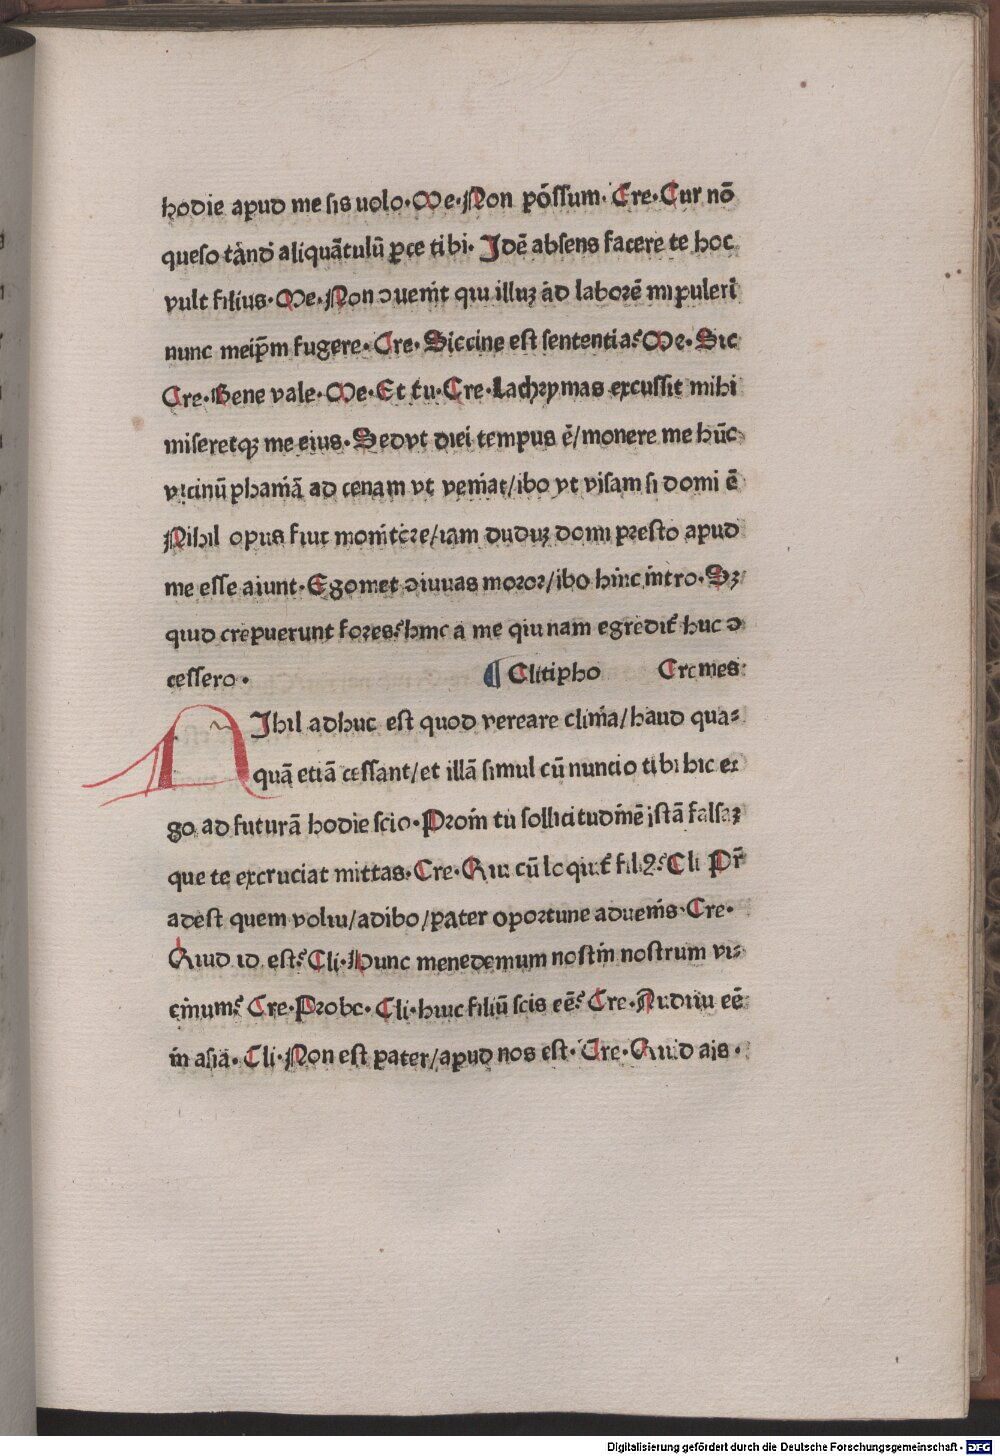 hodie apud me sis uolo·Me·Non põssum·Cre·Cur nõ
queso tãnd aliquãtulũ ꝑce tibi·Idẽ absens facere te hoc
vult filius·Me·Non ɔuenit qui illuꝫ ad laborẽ mipulerĩ
nunc meip̃m fugere·Cre·Siccine est sententia?Me·Sic
Cre·Bene vale·Me·Et tu·Cre·Lachrymas excussit mihi
miseretqꝫ me eius·Sedvt diei tempus ẽ/monere me hũc
vicinũ phaniã ad cenam vt veniat/ibo vt visam si domi ẽ
Nihil opus fiut monitore/iam duduꝫ domi presto apud
me esse aiunt·Egomet ɔiuuas moror/ibo hinc intro·Sꝫ
quid crepuerunt fores?hinc a me qui nam egredit̃ huc ɔ
cessero·
¶ Clitipho Cremes
Ihil adhuc est quod vereare clinia/haud qua=
quã etiã cessant/et illã simul cũ nuncio tibi hic er
go ad futurã hodie scio·Proin tu sollicitudinẽ istã falsaꝫ
que te excruciat mittas·Cre·Qui cũ loquit̃ filiꝰ?Cli Pr̃
adest quem voliu/adibo/pater oportune aduenis·Cre·
Quid id est?Cli·Hunc menedemum nostin nostrum vi=
cinum?Cre·Probe·Cli·huic filiũ scis eẽ?Cre·Audiui eẽ
in asia·Cli·Non est pater/apud nos est·Cre·Quid ais·
Digitalisierung gefördert durch die Deutsche Forschungsgemeinschaft - DFG